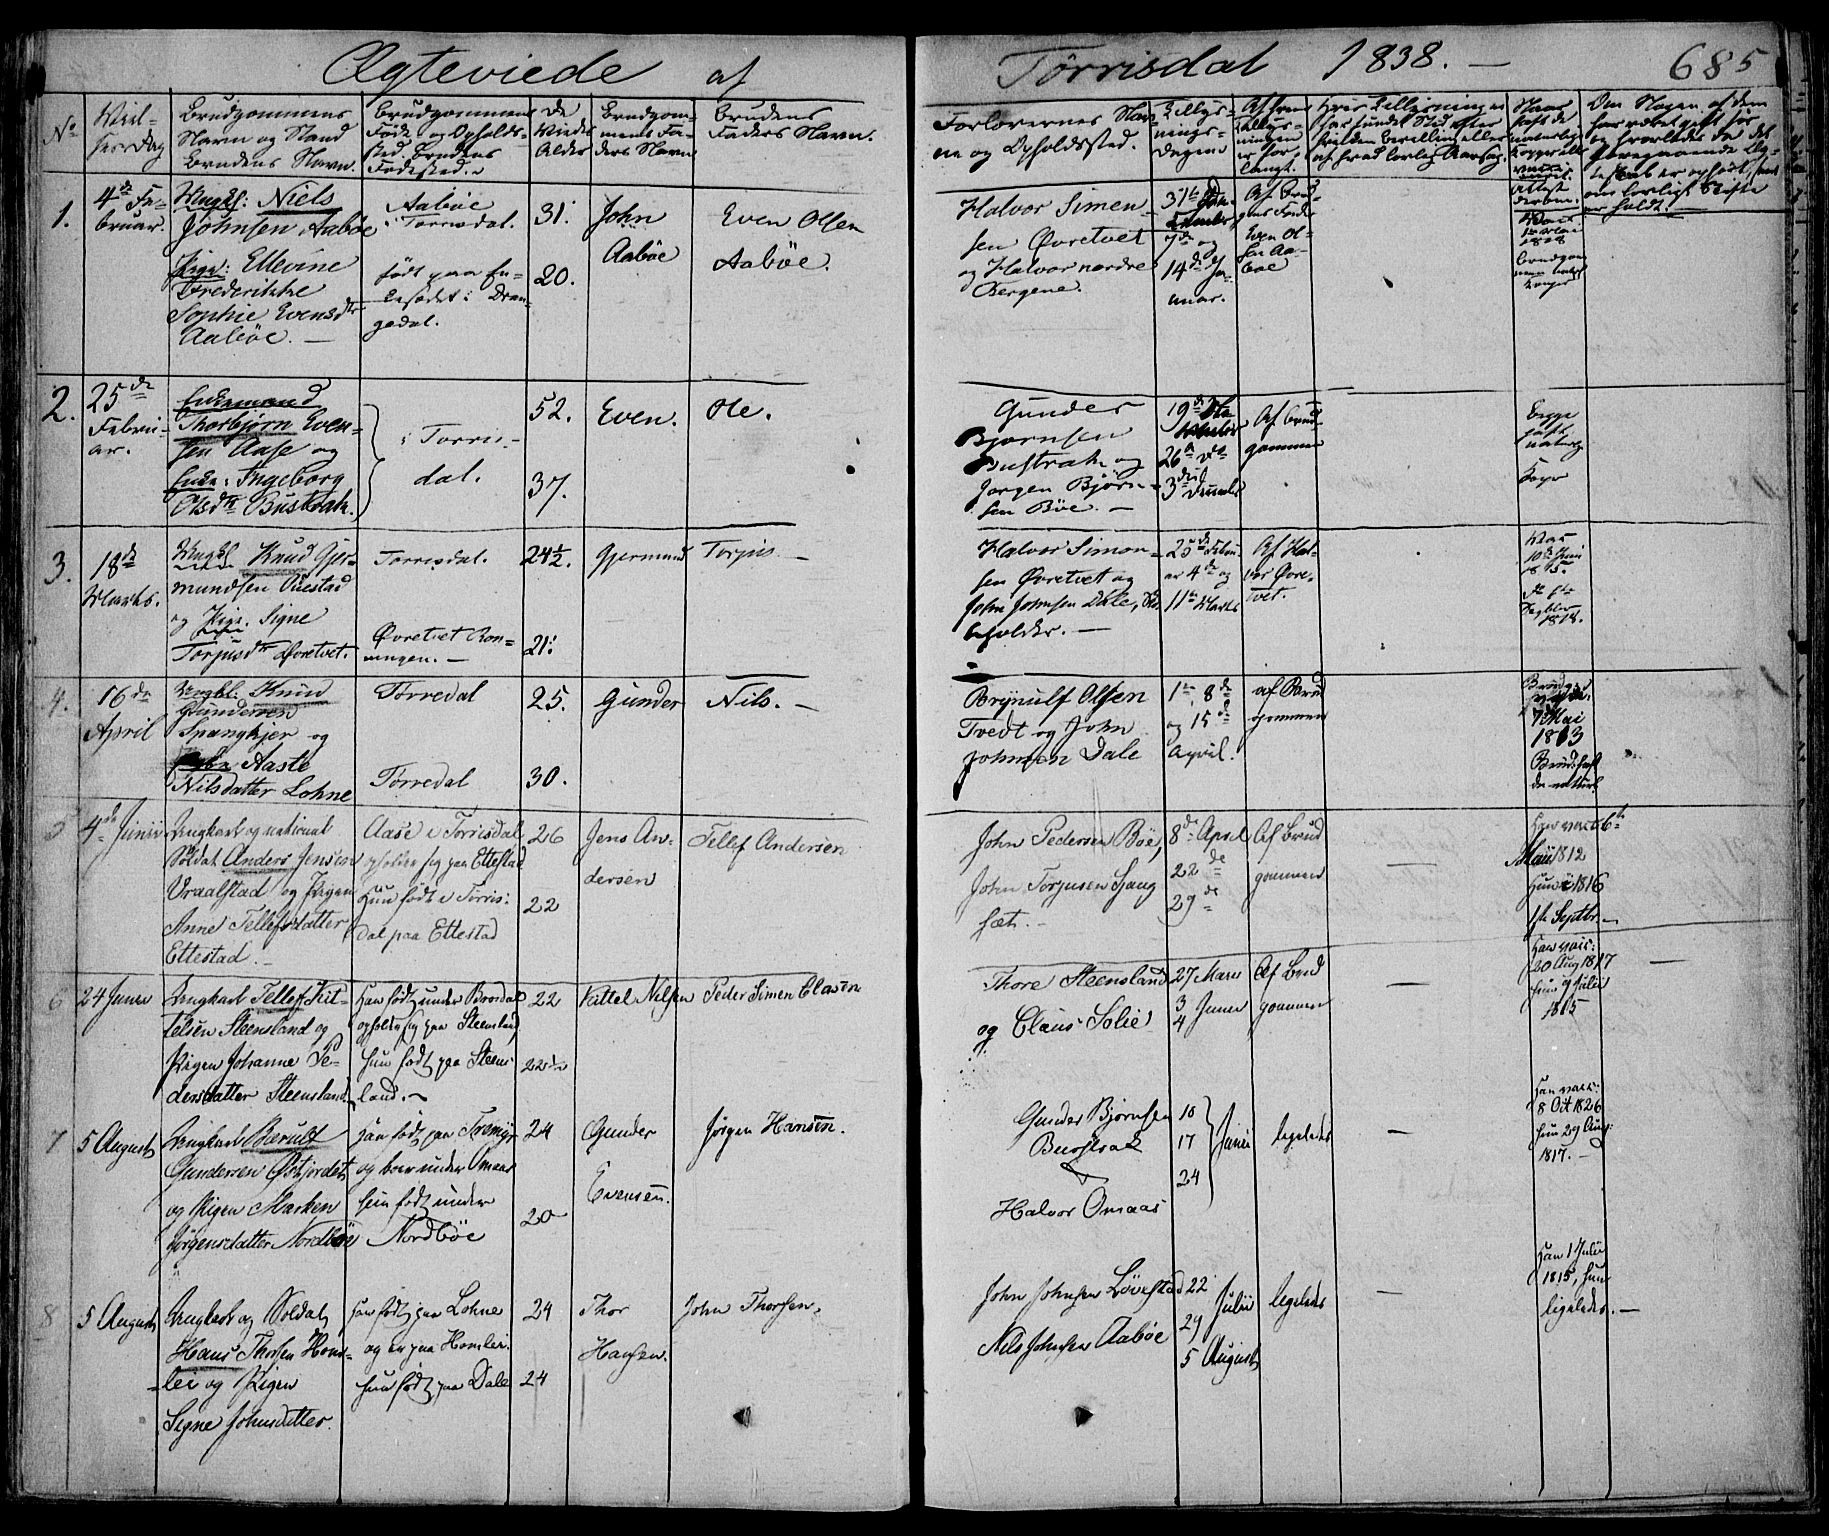 Ægteviede af Törrisdal 1838. — 685
No
Viel-
sesdag
Brudgommens
Navn og Stand
Brudens Navn.
Brudgommens
Føde og Opholds-
sted. Brudens
Fødested.
De
Viedes
Alder
Brudgom-
mens Fa-
ders Navn
Brudens
Faders Navn.
Forlovernes Nav-
ne og Opholdssted.
Tillys-
nings-
Dagene
Af hvem
Tillys-
ningen
er for-
langt.
1.
4de Fe-
bruar.
Ungkl: Niels
Johnsen Aabøe
Pige: Ellevine
Frederikke
Sophie Evensdtr
Aabøe. —
Aabøe
i Torrisdal.
født paa En-
kesædet i Dran-
gedal.
31.
20.
John
Aabøe
Even Olsen
Aabøe.
Halvor Simen-
sen Øvretvet
og Halvor nordre
Bergene.
7de og
14de Ja-
nuar.
2.
25de
Febru-
ar.
Enkemand
Thorbjørn Even-
sen Aase og
Enke: Ingeborg
Olsdtr Bustrak.
i Torris-
dal.
52.
37.
Even.
Ole.
Gunder
Bjørnsen
Bustrak og
Jørgen Bjørn-
sen Bøe. —
19de
26de
3die
Af Brud-
gommen
Begge
haft
naturlige
Kopper
3.
18de
Marts.
Ungkl Knud Gjer-
mundsen
og Pige. Signe
Torjusdtr Øvretvet.
Torrisdal.
Øvretvet Røn-
ningen. —
24½.
21.
Gjermund
Torjus —
Halvor Simon-
sen Øvretvet og
John Johnsen Dale,
25de Febru-
ar 4de og
11te Marts
Af Hal-
vor Øvre-
tvet.
4.
16de
April
Ungkl. Knud
Gundersen
Spangkjer og
Aaste
Nilsdatter Lohne
Tørredal
Tørredal
25.
30.
Gunder
Nils. —
Brynulf Olsen
Tvedt og John
Johnsen Dale
1te, 8de
og 15de
April.
af Brud
gommen
7de Mai
1813
5
4de Junii
Ungkarl og national
Soldat Anders Jensen
Vraalstad og Pigen
Anne Tellefsdatter
Ettestad. —
Aase i Torrisdal
opholder sig paa Ettestad
Hun født i Torris-
dal paa Ettestad
26
22
Jens An-
dersen
Tellef Andersen
John Pedersen Bøe,
John Torjusen Sjang
sæt. —
8de April
22de
29de
Af Brud
gommen
—
Han vact 6te
Maii 1812
Hun i 1816
1ste Septbr. —
6
24 Junii
Ungkarl Tellef Kit-
telsen Steensland og
Pigen Johanne Pe-
dersdatter Steensland.
Han født under Brosdal
opholder sig paa Steensland
hun født paa Steens-
land. —
22
22½
Kittel Nilsen
Peder Simen Clasen
Thore Steensland
og Claus Solie
27 Marn
3
4 Junii
Af Brud
gommen
—
Han vacc:
20 Aug 1817
hun 9 Julii
1815
—
7
5 August
Ungkarl Bærulf
Gundersen Østjordet
og Pigen Marken
Jørgensdatter Nordbøe
Han født paa Tremyr
og boer under Omaas
hun født under
Nordbøe
24
20
Gunder
Evensen.
Jørgen Hansen.
Gunder Bjørnsen
Burstrak
Halvor Omaas
10
17
24
Junii
ligeledes
—
Han vacc:
8 Oct 1826
hun 29 Aug:
1817. —
8
5 August
Ungkarl og Soldat
Hans Thorsen Hom-
lei og Pigen
Signe Johnsdatter.
Han født paa Lohne
og er paa Homlei.
hun født paa Dale
24
24
Thor
Hansen.
John Thorsen.
John Johnsen Løvestad
Nils Johnsen Aabøe
22
29 Julii
5 August
ligeledes
—
Han 1 Julii
1815, hun
ligeledes. —